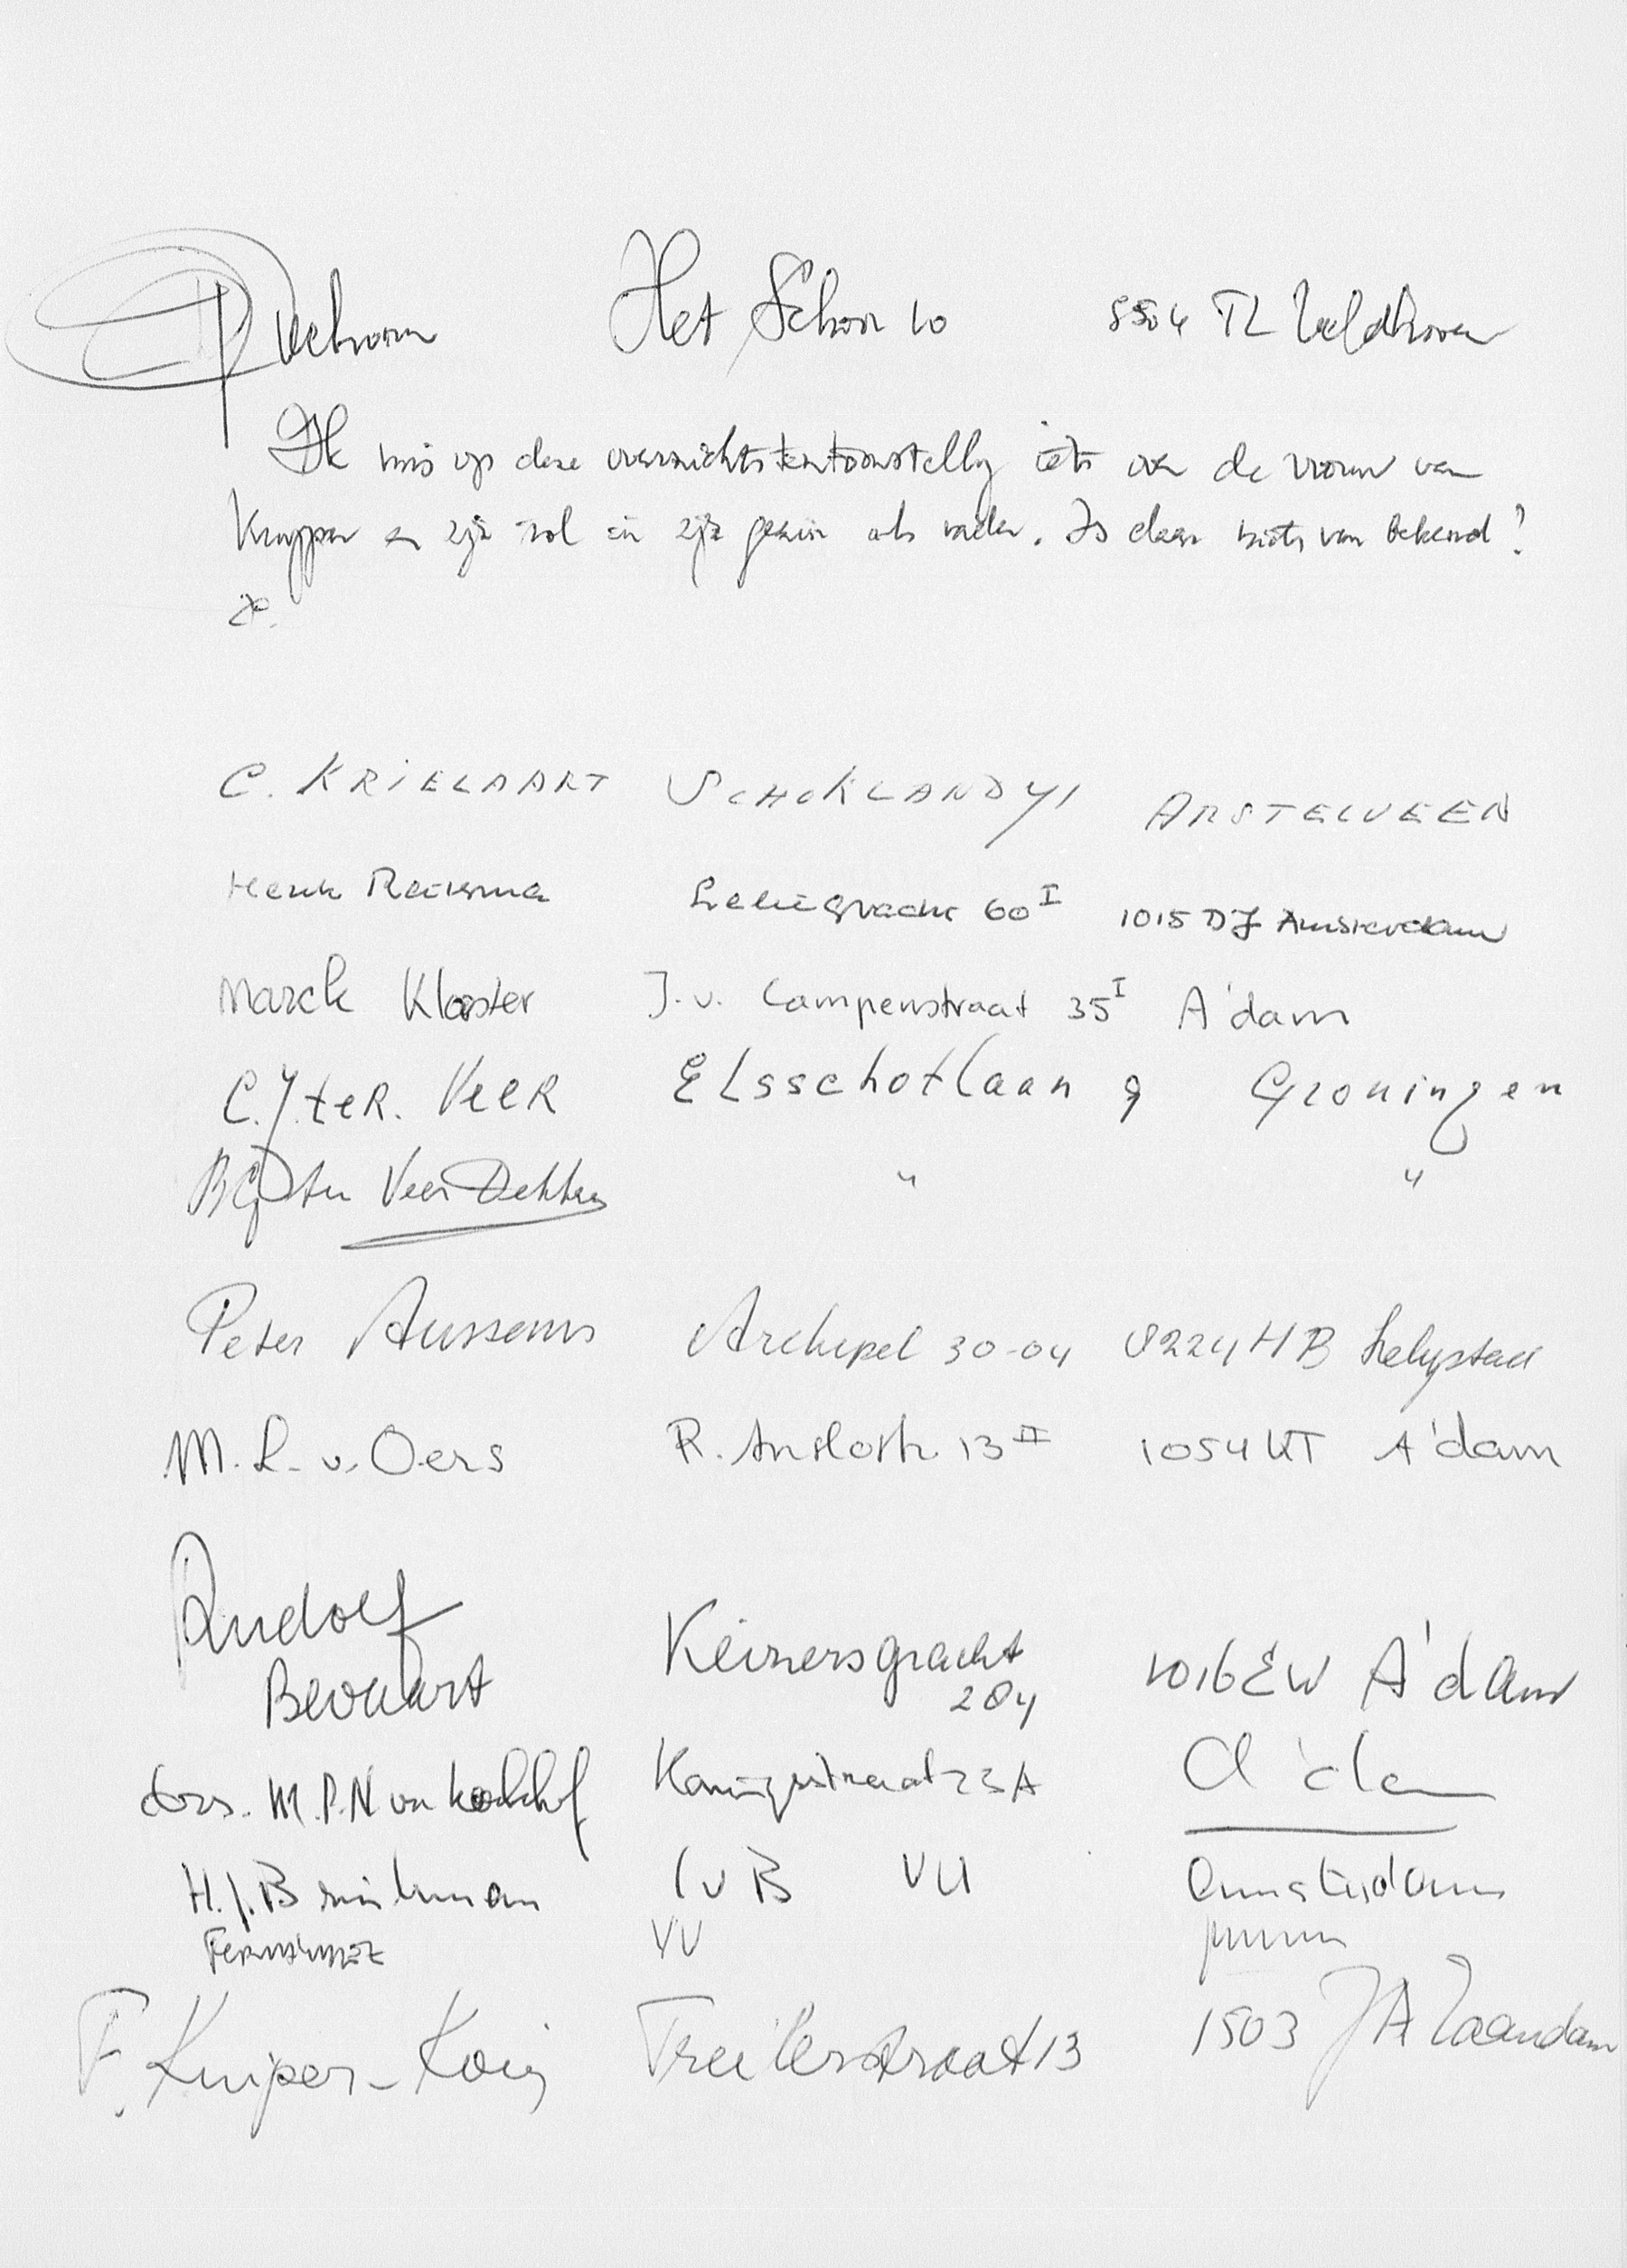 Het Schoor 10 TL Veldhoven
Ik mis op deze overzichtstentoonstelling iets over de vrouw van
Kuyper en zijn rol in zijn gezin als vader. Is daar niets van bekend?
C. KRIELAART SCHOKLAND 41 AMSTELVEEN
Henk Reitsma Leliegracht 60 I 1015 DJ Amsterdam
Marck Klooster J.v. Campenstraat 35 I A'dam
C.J. teR. VeeR ELsschotlaan 9 Groningen
ter Veer-Dekker " "
Peter Aussems Archipel 30-04 8224 HB Lelystad
M.L. v. Oers R. Anslostr. 13 II 1054 KT A'dam
Rudolf
Keizersgracht 1016 EW A'dam
284
drs. M.P.N. van A'dam
H.J. Brinkman IvB VU Amsterdam
VU
F. Kuiper-Kooij Treilerstraat 13 1503 JA Zaandam